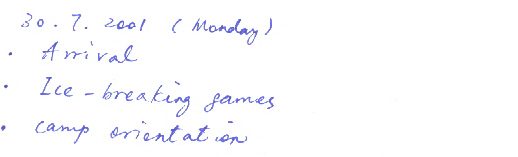 30. 7. 2001 (Monday)
• Arrival
• Ice-breaking games
• camp orientation